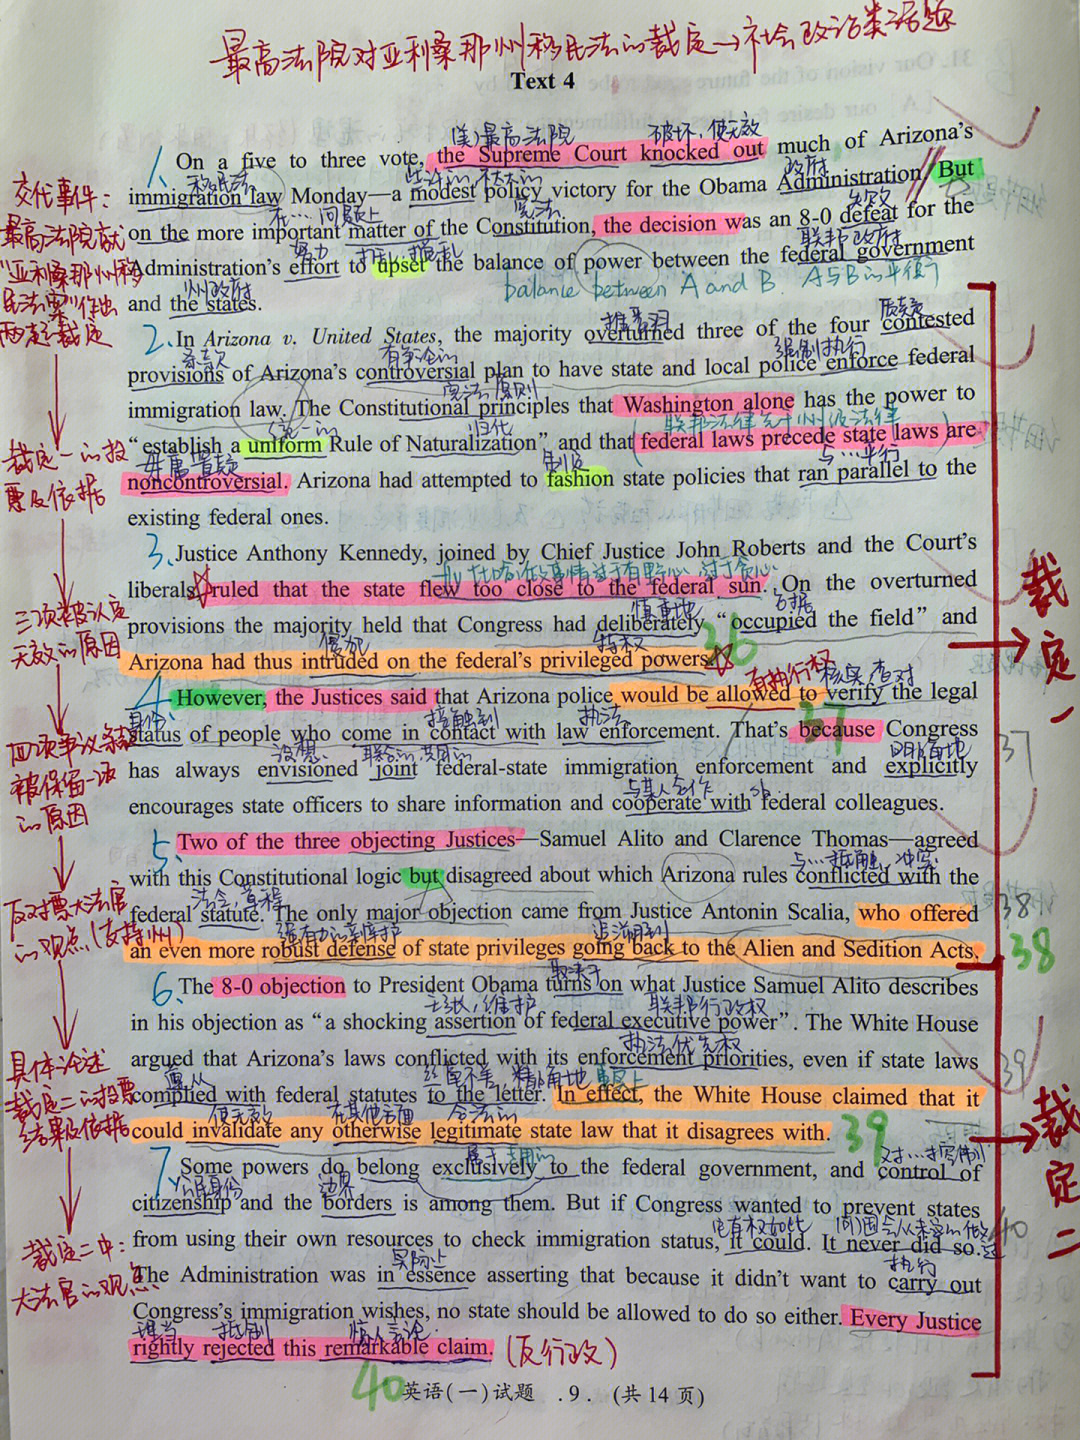 最高法院对亚利桑那州移民法的裁定→社会政治类话题
Text 4
(美)最高法院 破坏,使无效
1. On a five to three vote, the Supreme Court knocked out much of Arizona's
移民法 政府
immigration law Monday—a modest policy victory for the Obama Administration. // But
在…问题上 宪法 失败
on the more important matter of the Constitution, the decision was an 8-0 defeat for the
努力 联邦政府
Administration's effort to upset the balance of power between the federal government
州政府 balance between A and B. A与B的平衡
and the states.
推翻 质疑
2. In Arizona v. United States, the majority overturned three of the four contested
条款 有争论的 强制执行
provisions of Arizona's controversial plan to have state and local police enforce federal
宪法 原则
immigration law. The Constitutional principles that Washington alone has the power to
归化 (联邦法律先于州级法律)
"establish a uniform Rule of Naturalization" and that federal laws precede state laws are
毋庸置疑 制定 与…平行
noncontroversial. Arizona had attempted to fashion state policies that ran parallel to the
existing federal ones.
3. Justice Anthony Kennedy, joined by Chief Justice John Roberts and the Court's
liberals, ruled that the state flew too close to the federal sun. On the overturned
慎重地 占据
provisions the majority held that Congress had deliberately "occupied the field" and
侵犯 特权 36
Arizona had thus intruded on the federal's privileged powers.
有执行权 核实,查对
4. However, the Justices said that Arizona police would be allowed to verify the legal
身份 接触到 执法 37
status of people who come in contact with law enforcement. That's because Congress
设想 联合的,共同的 明确地
has always envisioned joint federal-state immigration enforcement and explicitly
与某人合作 sb
encourages state officers to share information and cooperate with federal colleagues.
5. Two of the three objecting Justices—Samuel Alito and Clarence Thomas—agreed
与…抵触,冲突
with this Constitutional logic but disagreed about which Arizona rules conflicted with the
法令,章程
federal statute. The only major objection came from Justice Antonin Scalia, who offered
强有力的辩护 追溯到
an even more robust defense of state privileges going back to the Alien and Sedition Acts.
38
取决于
6. The 8-0 objection to President Obama turns on what Justice Samuel Alito describes
主张,维护 联邦行政权
in his objection as "a shocking assertion of federal executive power". The White House
执法优先权
argued that Arizona's laws conflicted with its enforcement priorities, even if state laws
遵从 丝毫不差,精确地 事实上
complied with federal statutes to the letter. In effect, the White House claimed that it
使无效 在其他方面 合法的
could invalidate any otherwise legitimate state law that it disagrees with. 39
属于 对…控制
7. Some powers do belong exclusively to the federal government, and control of
公民身份 边界
citizenship and the borders is among them. But if Congress wanted to prevent states
它有权如此
from using their own resources to check immigration status, it could. It never did so.
实际上 执行
The Administration was in essence asserting that because it didn't want to carry out
Congress's immigration wishes, no state should be allowed to do so either. Every Justice
理当 抵制 惊人言论
rightly rejected this remarkable claim. (反行政)
40
英语(一)试题 . 9 . (共14页)
交代事件:
最高法院就
"亚利桑那州移
民法案"作出
两项裁定
裁定一的投
票及依据
三项被认定
无效的原因
四项争议条款
被保留一项
的原因
反对票大法官
的观点(支持州)
具体论述
裁定二的投票
结果及依据
裁定二中:
大法官的观点
裁定一
37
38
39
裁定二
40